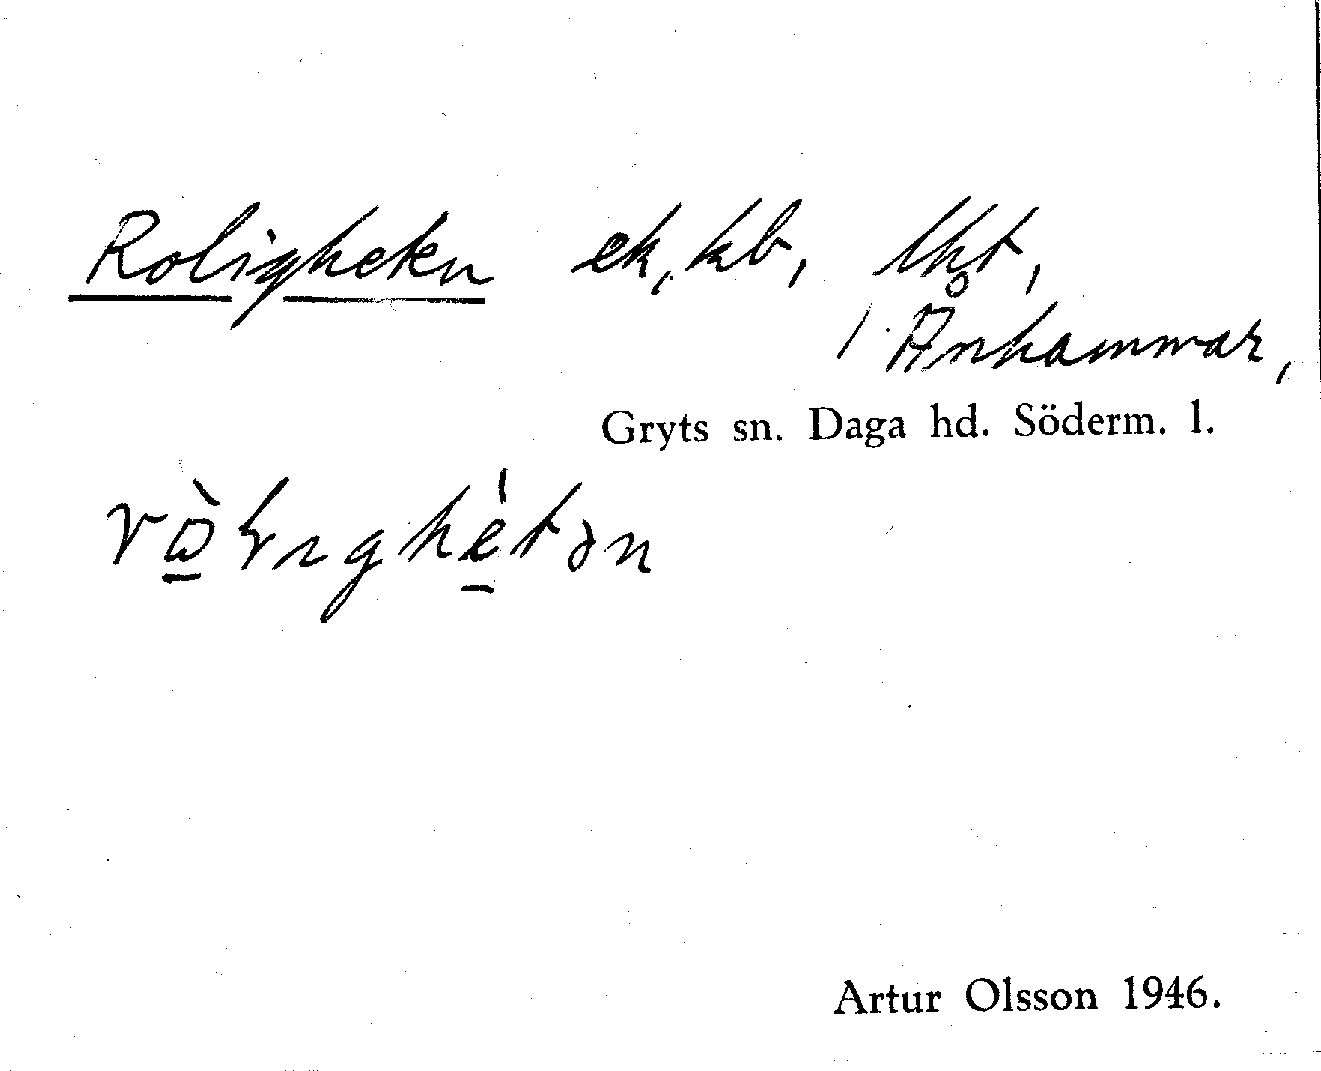 Roligheten ek, kb, lht,
i Änhammar,
Gryts sn. Daga hd. Söderm. l.
Artur Olsson 1946.